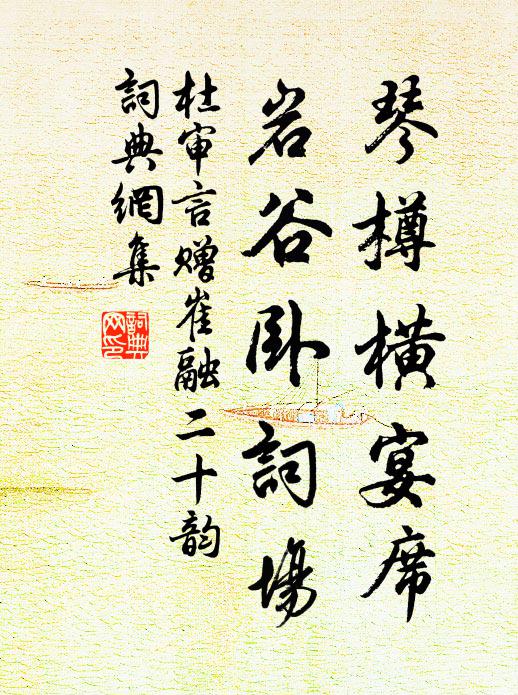 琴樽橫宴席
岩谷卧詞場
杜审言赠崔融二十韵
詞典網集
詞典
网印